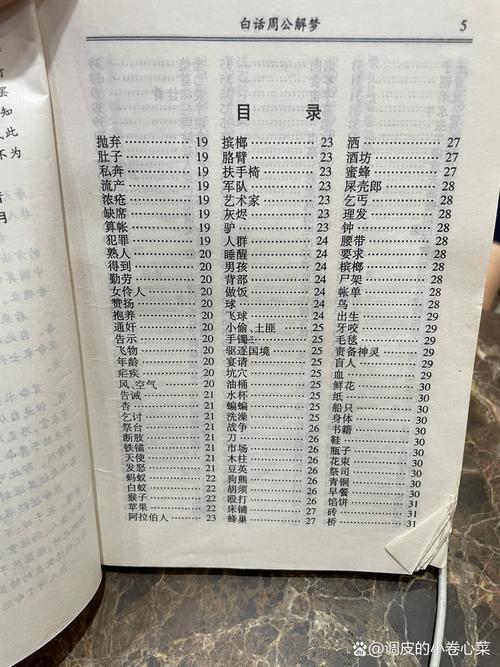 白话周公解梦 5
目 录
抛弃 19
肚子 19
私奔 19
流产 19
浓疮 19
缺席 19
算帐 19
犯罪 19
熟人 19
得到 20
勤劳 20
女伶人 20
赞扬 20
抱养 20
通奸 20
告示 20
飞物 20
年龄 20
疟疾 20
风、空气 20
告诫 21
杏 21
乞讨 21
祭台 21
断肢 21
铁锚 21
天使 21
发怒 21
蚂蚁 22
白蚁 22
猴子 22
苹果 22
阿拉伯人 23
摈榔 23
胳臂 23
扶手椅 23
军队 23
艺术家 23
灰烬 23
驴 23
人群 24
睡醒 24
男孩 24
背部 24
做饭 24
球 24
飞球 24
小偷、土匪 25
手镯 25
驱逐国境 25
宴请 25
坑穴 25
油桶 25
水杯 25
蝙蝠 25
洗澡 25
战争 26
刀 26
市场 26
木柱 26
豆英 26
狗熊 26
胡须 26
殴打 26
床铺 27
蜂巢 27
洒 27
酒坊 27
蜜蜂 27
屎壳郎 28
乞丐 28
理发 28
钟 28
腰带 28
要求 28
槟榔 28
尸架 28
帐单 28
鸟 28
出生 29
牙咬 29
毛毯 29
责备神灵 29
盲人 29
血 29
鲜花 30
纸 30
船只 30
身体 30
书籍 30
鞋 30
瓶子 30
花束 30
祭司 30
青铜 30
早餐 30
馅饼 31
砖 31
桥 31
知
不为
月
@调皮的小卷心菜